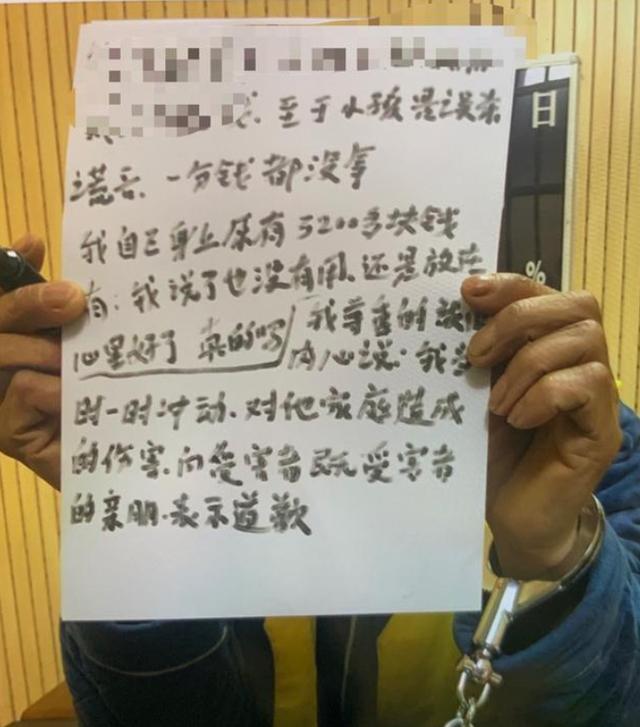 至于小孩是误杀
谎言、一分钱都没拿
我自己身上原有5200多块钱
有:我说了也没有用、还是放在
心里好了 真的吗 我尊重的
内心说:我当
时一时冲动、对他家庭造成
的伤害、向受害者既受害者
的亲朋、表示道歉
日
%